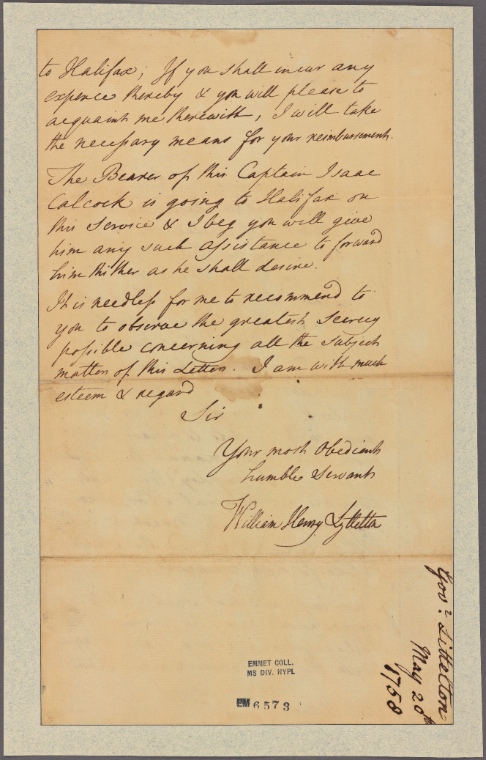 to Halifax; If you shall incur any
expence thereby & you will please to
acquaint me therewith, I will take
the necessary means for your reimbursement.
The Bearer of this Captain Isaac
Calcock is going to Halifax on
this Service & I beg you will give
him any such assistance to forward
him thither as he shall desire.
It is needless for me to recommend to
you to observe the greatest Secrecy
possible concerning all the subject
matter of this Letter. I am with much
esteem & regard
Sir
Your most Obedient
humble Servant
William Henry Lyttelton
Govr. Littelton
May 20th
1758
EMMET COLL.
MS DIV. NYPL
EM 6573